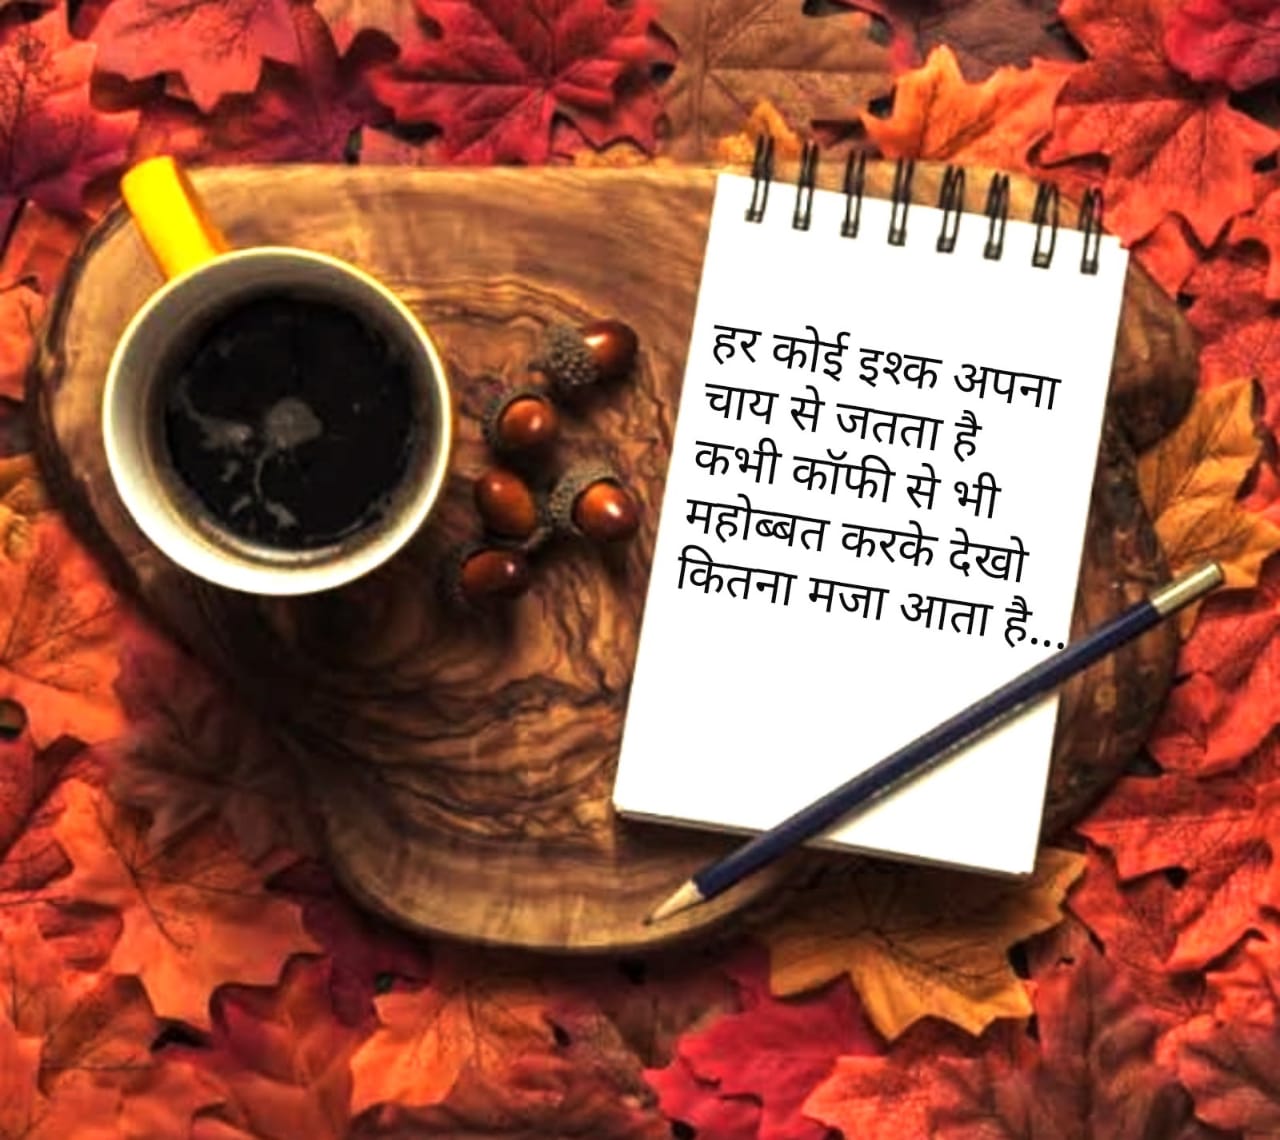 हर कोई इश्क अपना
चाय से जतता है
कभी कॉफी से भी
महोब्बत करके देखो
कितना मजा आता है...